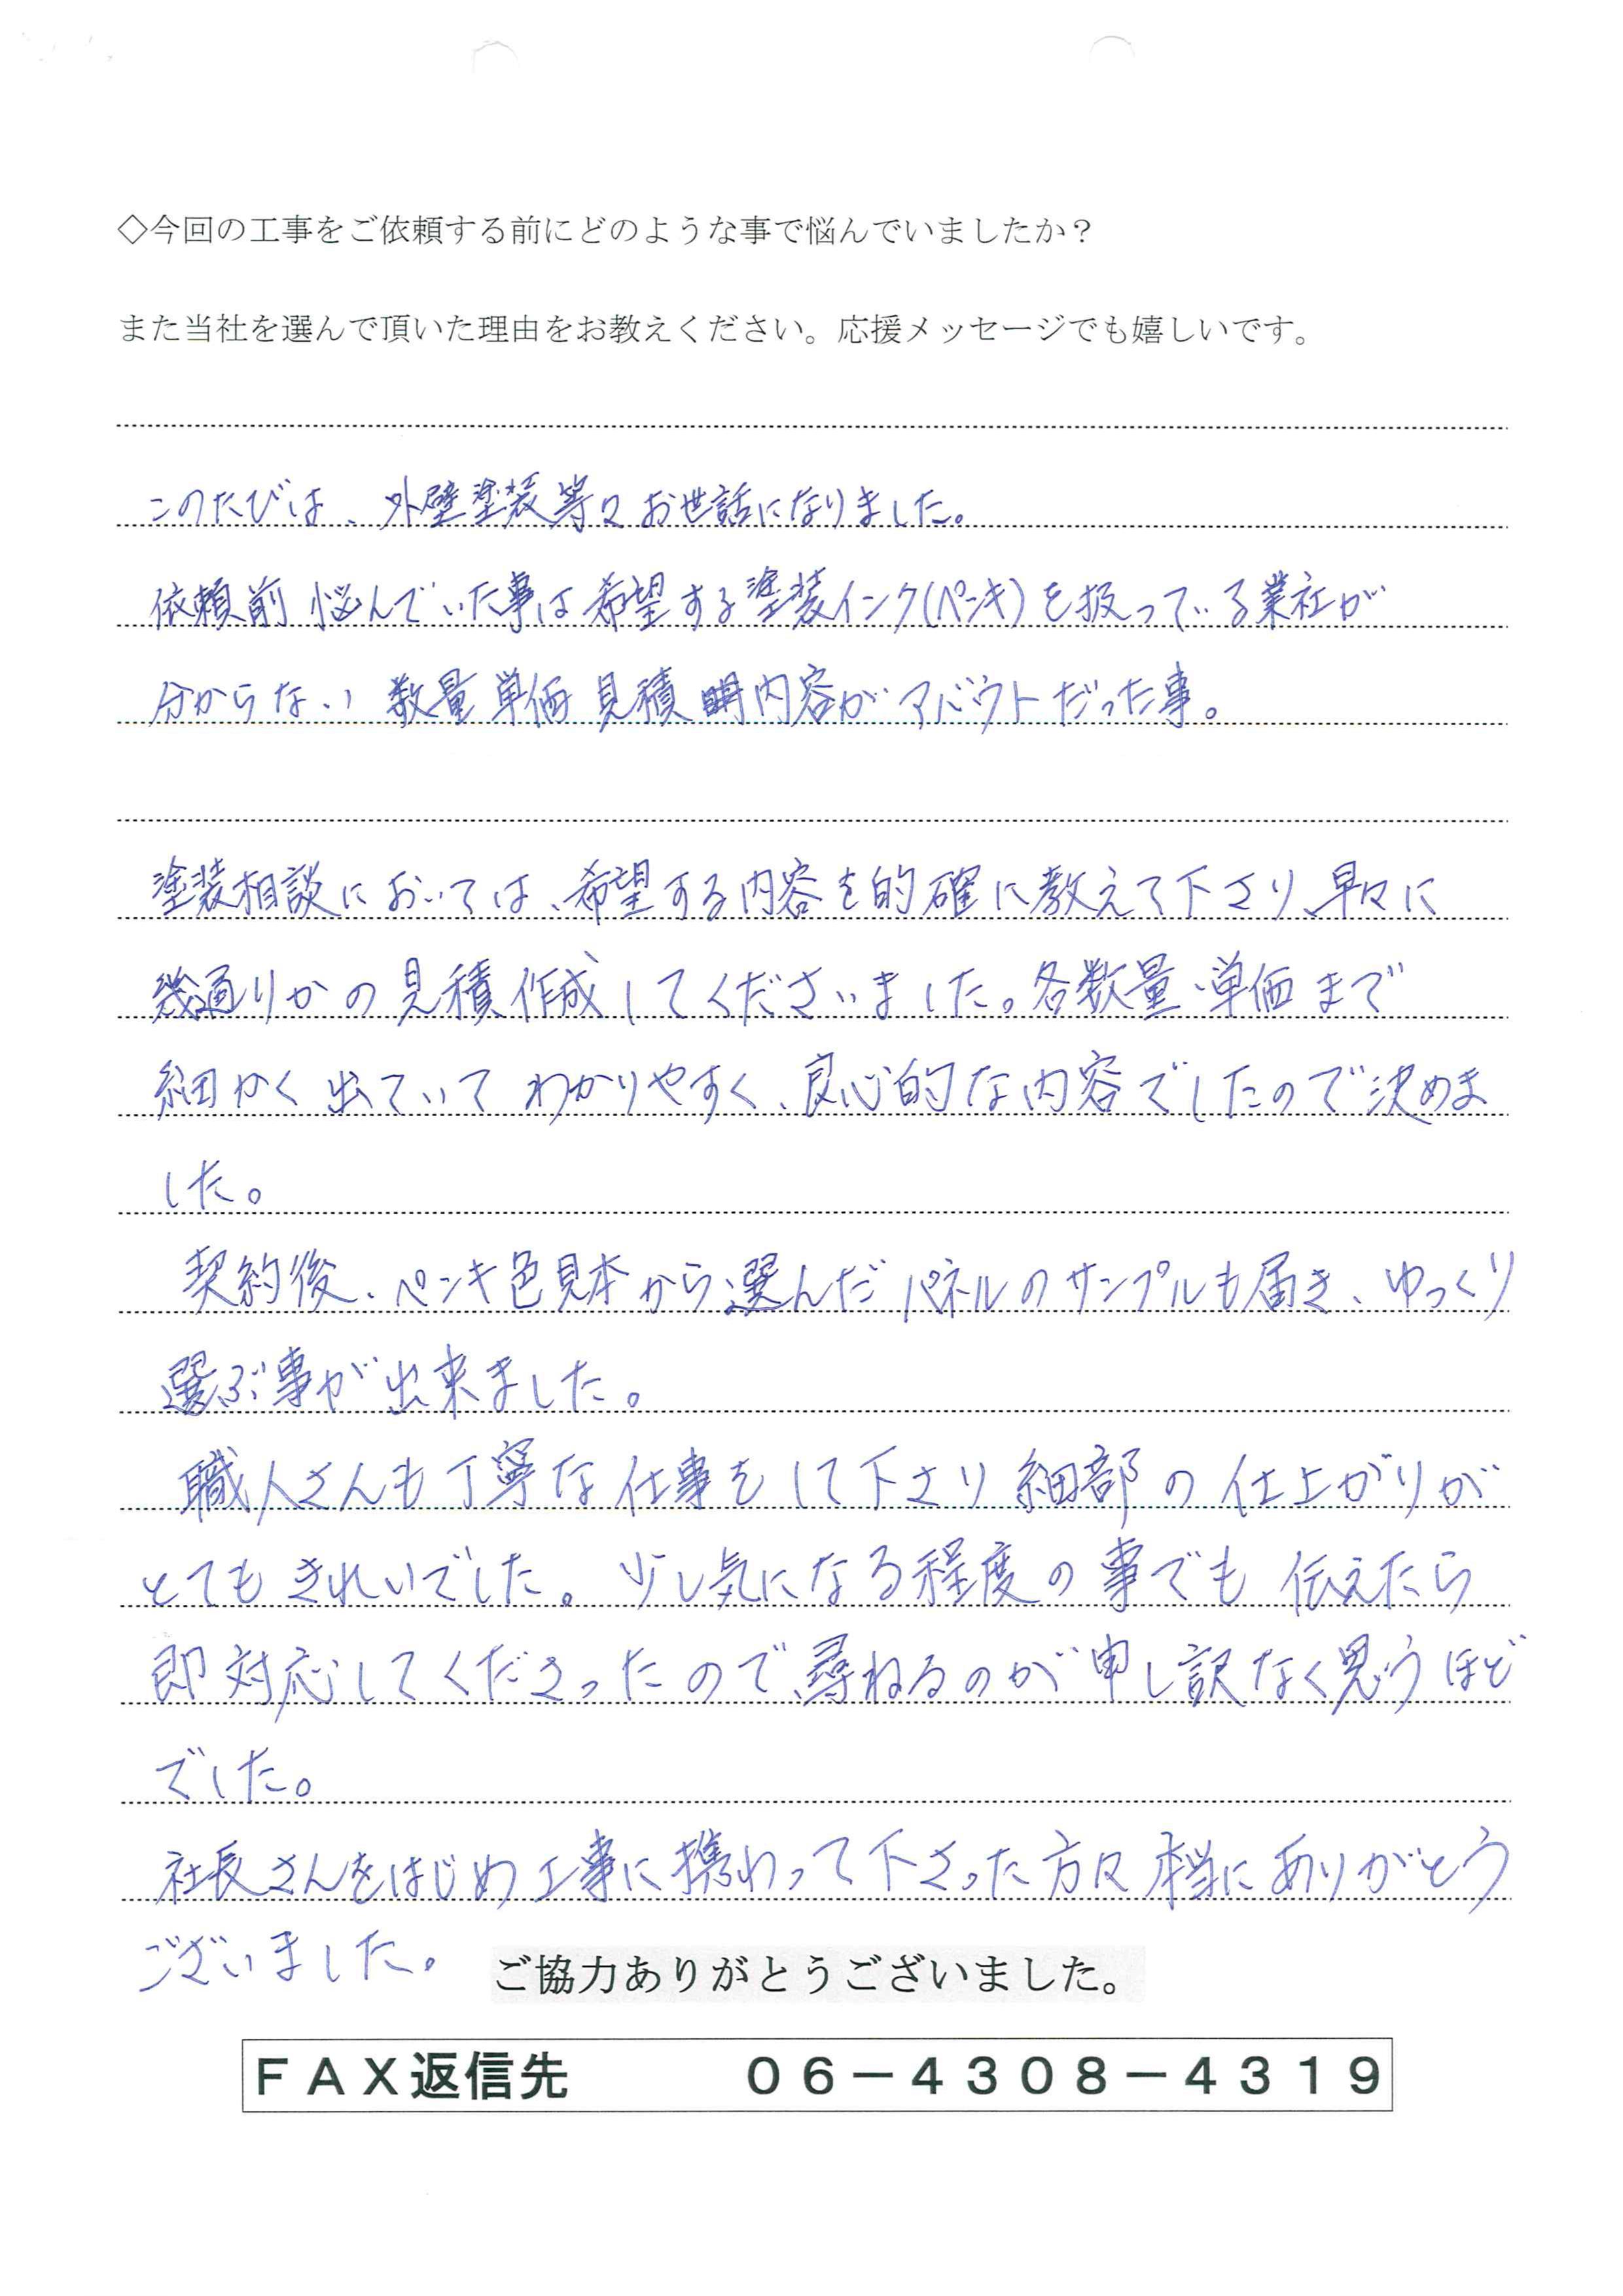 ◇今回の工事をご依頼する前にどのような事で悩んでいましたか？
また当社を選んで頂いた理由をお教えください。応援メッセージでも嬉しいです。
このたびは、外壁塗装等々お世話になりました。
依頼前 悩んでいた事は希望する塗装インク(ペンキ)を扱っている業社が
分からない 数量単価 見積 内容がアバウトだった事。
塗装相談においては、希望する内容を的確に教えて下さり、早々に
幾通りかの見積作成してくださいました。各数量・単価まで
細かく出ていてわかりやすく、良心的な内容でしたので決めま
した。
契約後、ペンキ色見本から選んだパネルのサンプルも届き、ゆっくり
選ぶ事が出来ました。
職人さんも丁寧な仕事をして下さり細部の仕上がりが
とてもきれいでした。少し気になる程度の事でも伝えたら
即対応してくださったので、尋ねるのが申し訳なく思うほど
でした。
社長さんをはじめ工事に携わって下さった方々本当にありがとう
ございました。
ご協力ありがとうございました。
ＦＡＸ返信先　　　０６－４３０８－４３１９